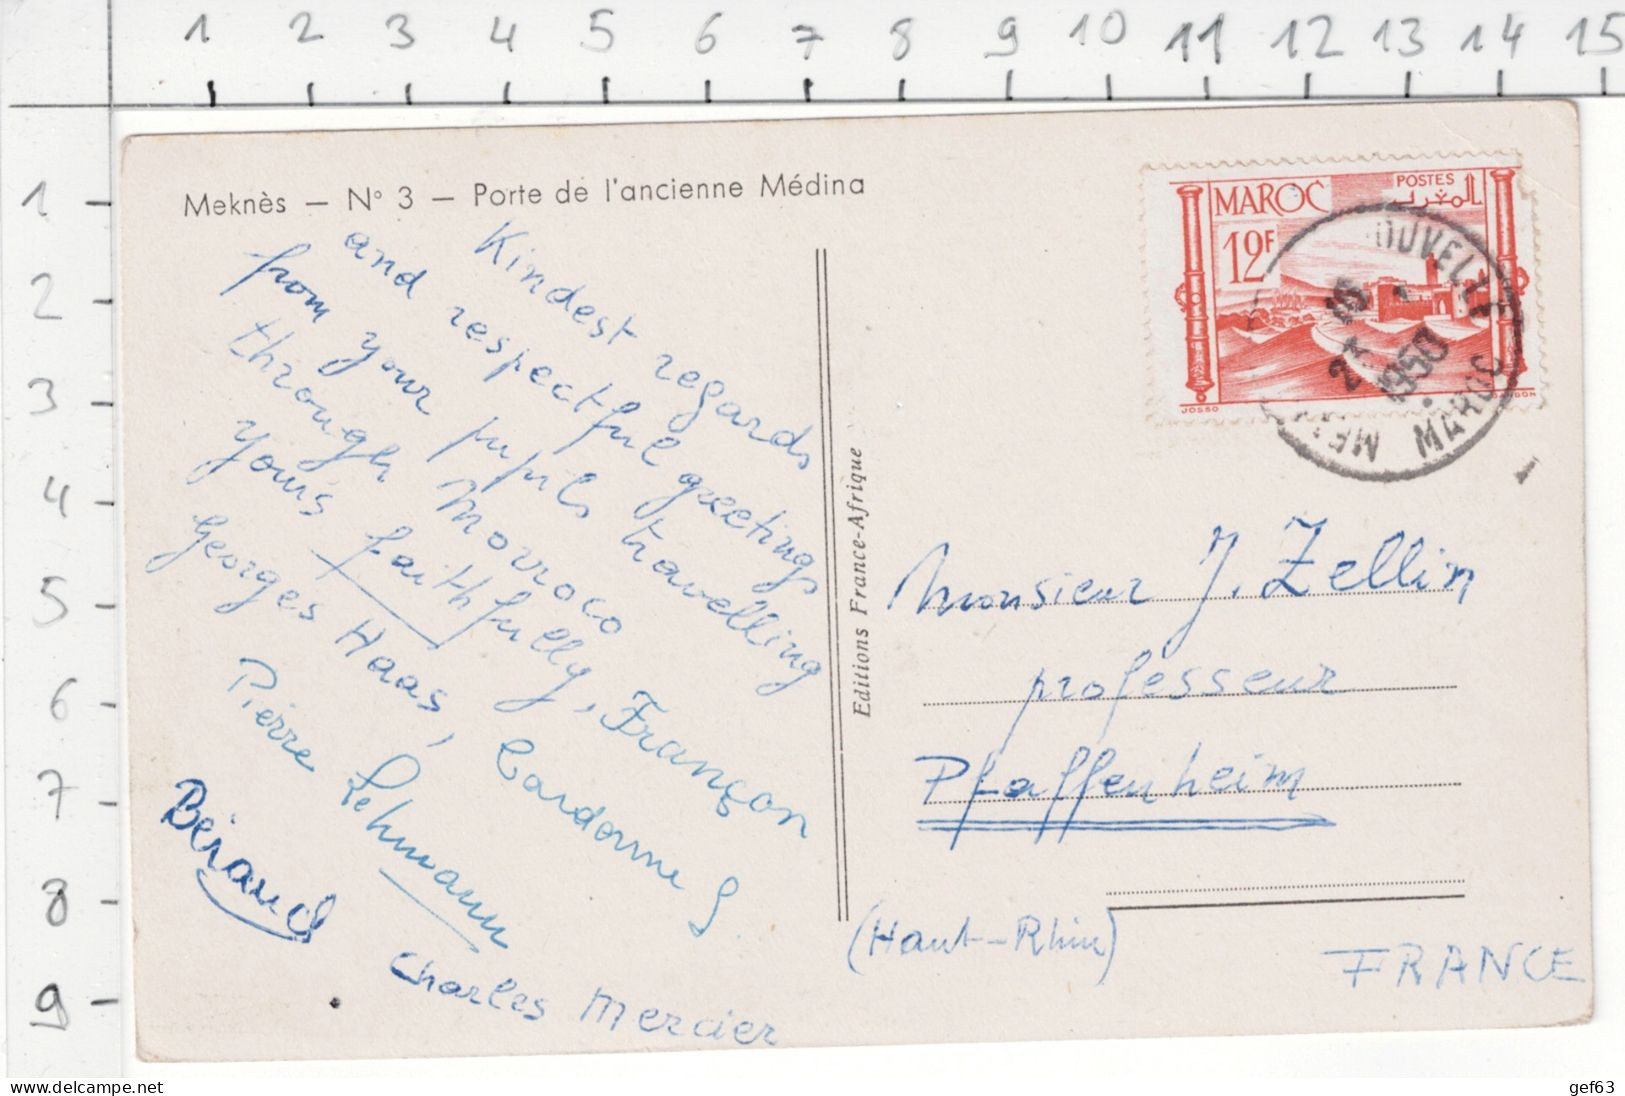 1 2 3 4 5 6 7 8 9 10 11 12 13 14 15
1
2
3
4
5
6
7
8
9
Meknès – N° 3 – Porte de l'ancienne Médina
Kindest regards
and respectful greetings
from your pupils travelling
through Morroco
yours faithfully, Françon
Georges Haas, Cardonne S.
Pierre Lehmann
Béraud
Charles Mercier
Editions France-Afrique
MAROC
POSTES
المغرب
12F
JOSSO
OUVELLE
1950
MAROC
Monsieur J. Zellin
professeur
Pfaffenheim
(Haut-Rhin)
FRANCE
gef63